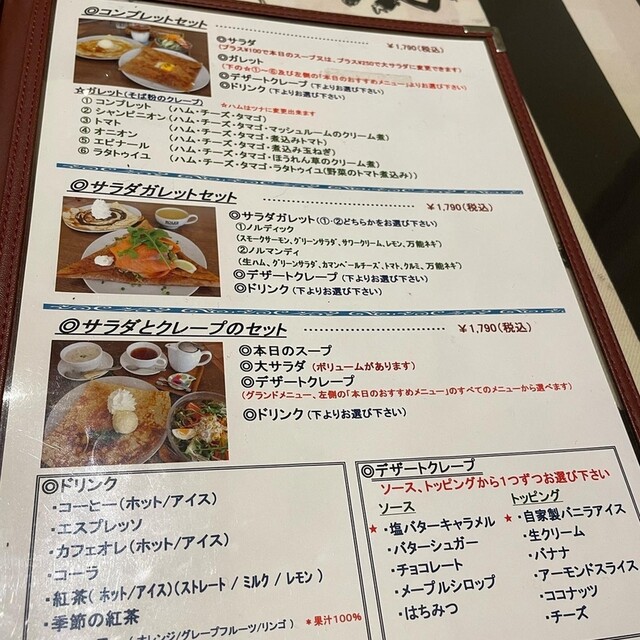 ◎コンプレットセット ¥1,790(税込)
◎サラダ
(プラス¥100で本日のスープ又は、プラス¥250で大サラダに変更できます)
◎ガレット
(下の☆①~⑥及び左側の「本日のおすすめメニュー」よりお選び下さい)
◎デザートクレープ (下よりお選び下さい)
◎ドリンク (下よりお選び下さい)
☆ガレット(そば粉のクレープ) ☆ハムはツナに変更出来ます
① コンプレット (ハム・チーズ・タマゴ)
② シャンピニオン (ハム・チーズ・タマゴ・マッシュルームのクリーム煮)
③ トマト (ハム・チーズ・タマゴ・煮込みトマト)
④ オニオン (ハム・チーズ・タマゴ・煮込み玉ねぎ)
⑤ エピナール (ハム・チーズ・タマゴ・ほうれん草のクリーム煮)
⑥ ラタトゥイユ (ハム・チーズ・タマゴ・ラタトゥイユ(野菜のトマト煮込み))
◎サラダガレットセット ¥1,790(税込)
◎サラダガレット (①・②どちらかをお選び下さい)
①ノルディック
(スモークサーモン、グリーンサラダ、サワークリーム、レモン、万能ネギ)
②ノルマンディ
(生ハム、グリーンサラダ、カマンベールチーズ、トマト、クルミ、万能ネギ)
◎デザートクレープ (下よりお選び下さい)
◎ドリンク (下よりお選び下さい)
◎サラダとクレープのセット ¥1,790(税込)
◎本日のスープ
◎大サラダ (ボリュームがあります)
◎デザートクレープ
(グランドメニュー、左側の「本日のおすすめメニュー」のすべてのメニューから選べます)
◎ドリンク (下よりお選び下さい)
◎ドリンク
・コーヒー(ホット/アイス)
・エスプレッソ
・カフェオレ(ホット/アイス)
・コーラ
・紅茶( ホット/アイス)(ストレート / ミルク / レモン )
・季節の紅茶 *果汁100%
オレンジ/グレープフルーツ/リンゴ )
◎デザートクレープ
ソース、トッピングから1つずつお選び下さい
ソース
★・塩バターキャラメル
・バターシュガー
・チョコレート
・メープルシロップ
・はちみつ
トッピング
★・自家製バニラアイス
・生クリーム
・バナナ
・アーモンドスライス
・ココナッツ
・チーズ